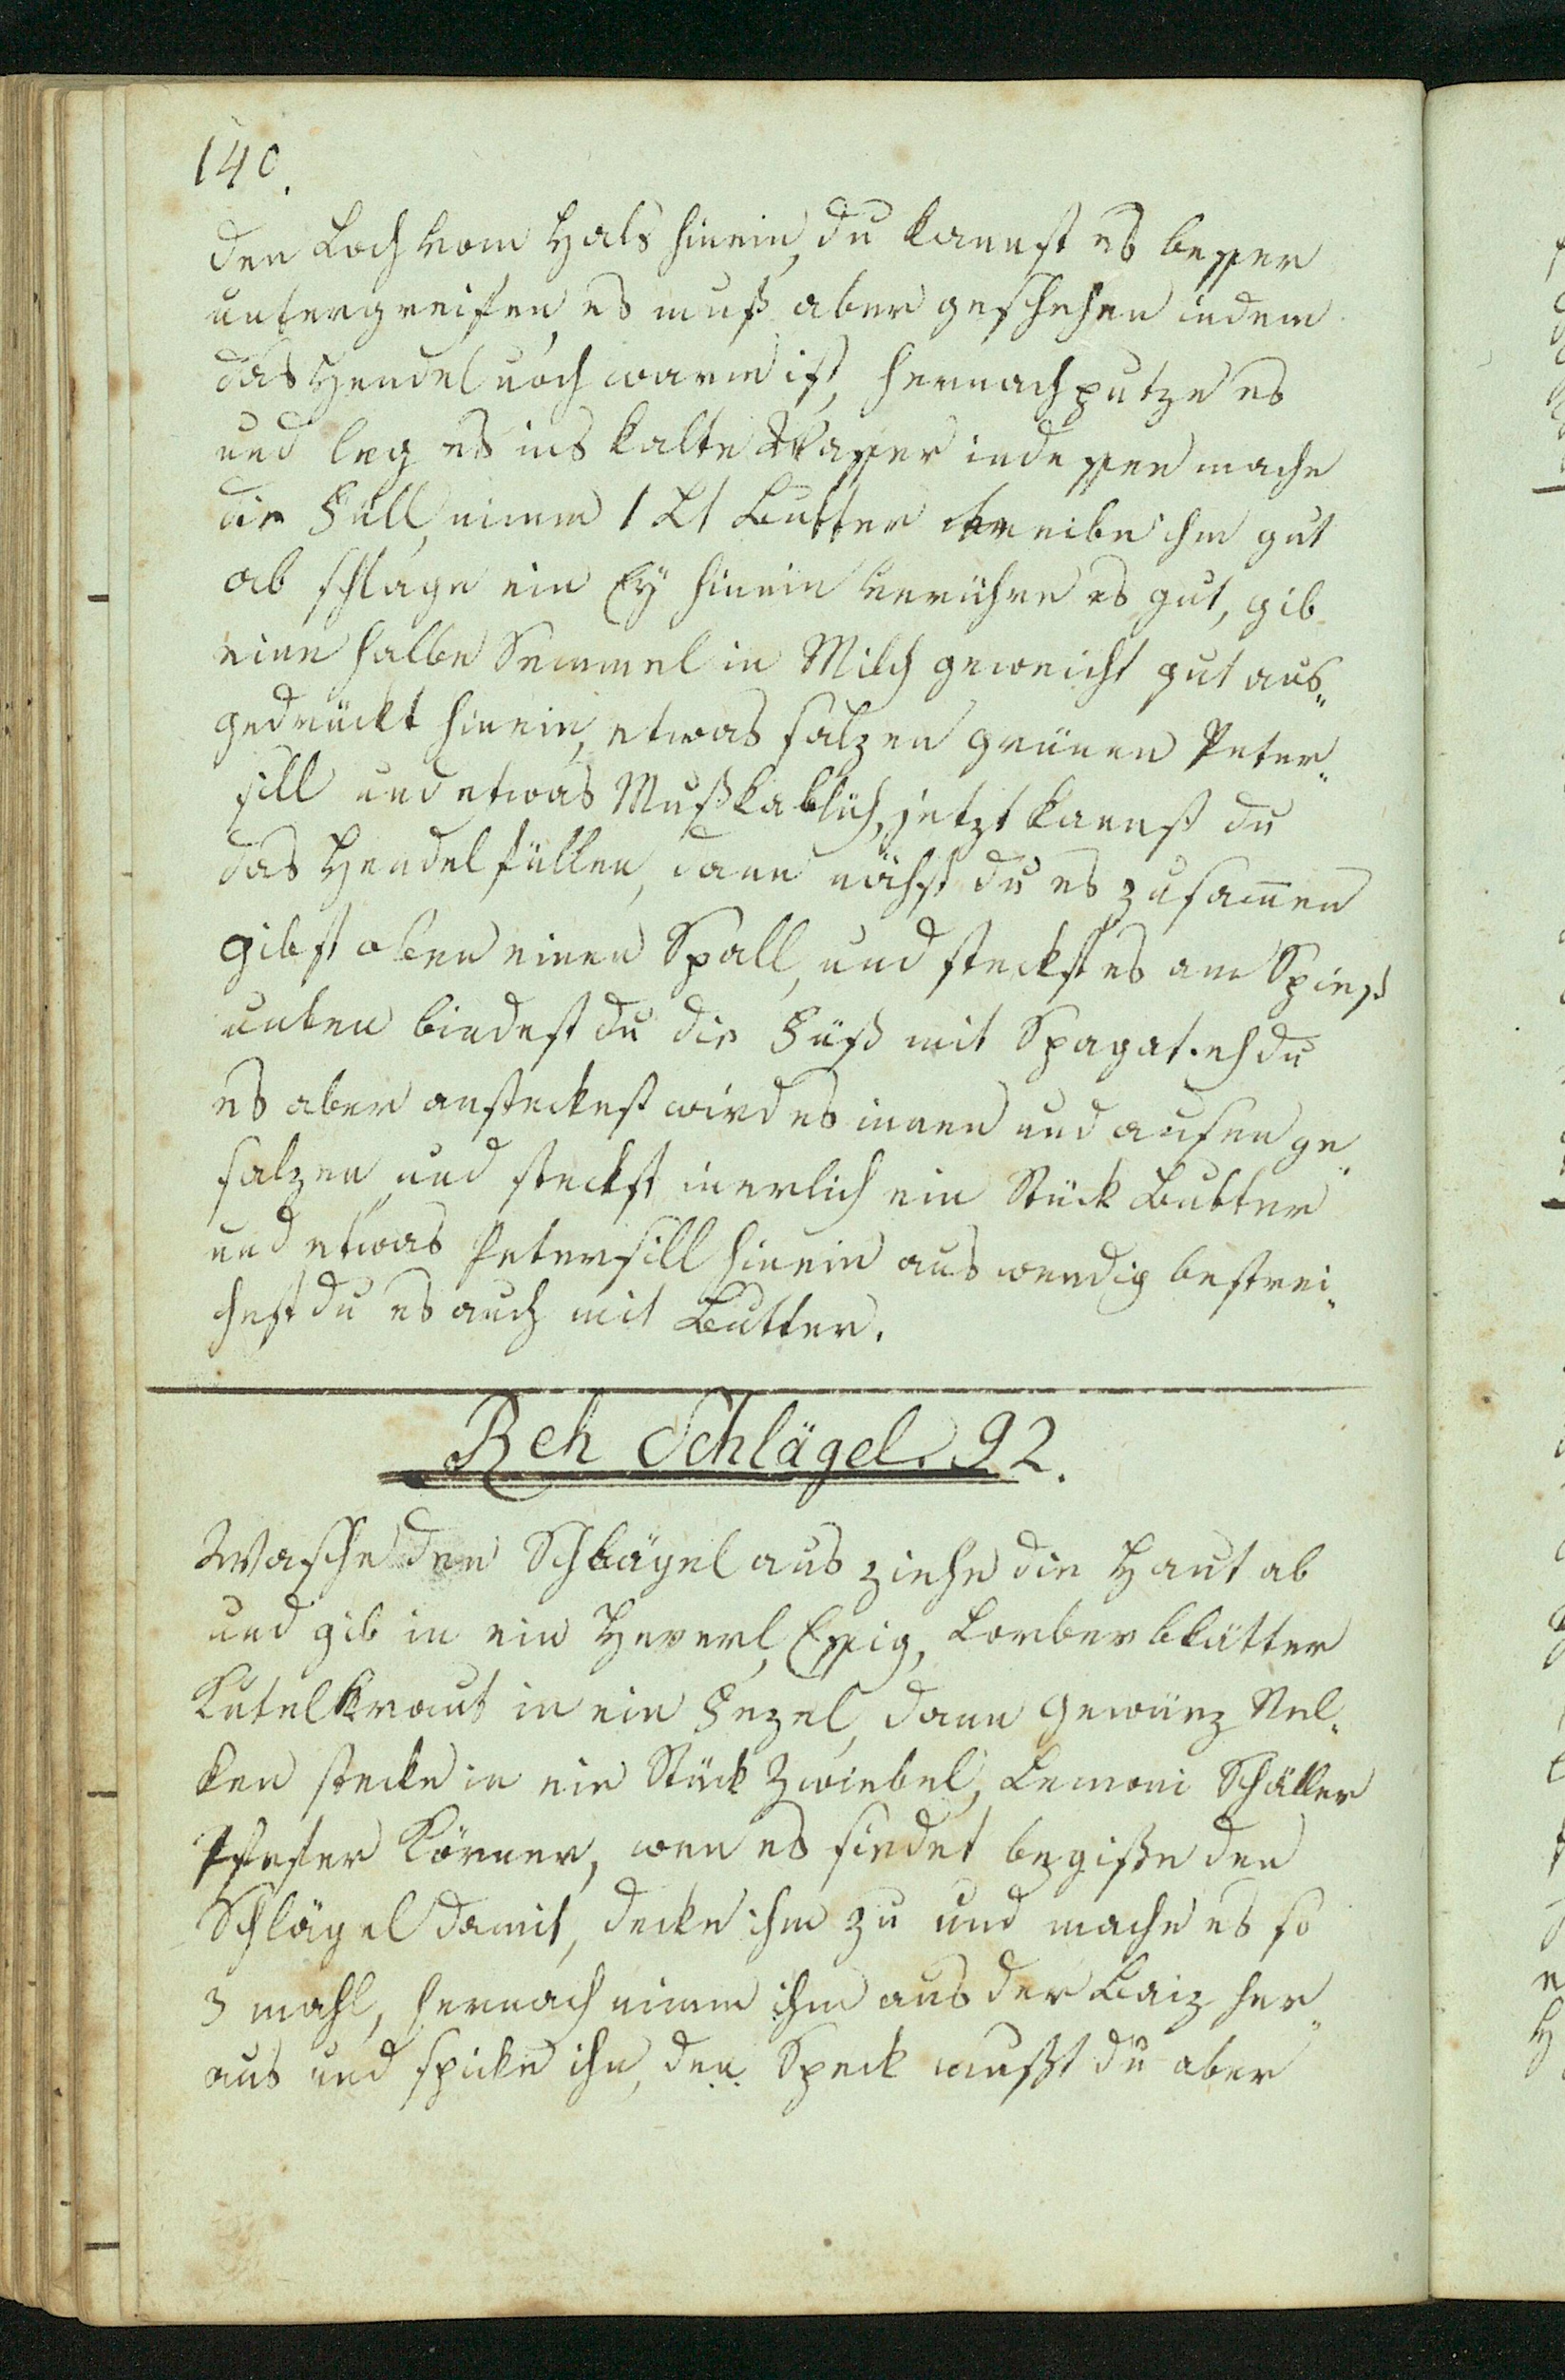 140.
den Loch vom Hals hinein, du kannst es besser
untergreifen, es muß aber geschehen indem
das Hendel noch warm ist, hernach putze es
und leg es ins kalte Wasser indessen mache
die Füll, nimm 1 Lt Butter treibe ihm gut
ab schlage ein Ey hinein verrühre es gut, gib
eine halbe Semmel in Milch geweicht gut aus„
gedrückt hinein, etwas salzen grünen Peter„
sill und etwas Mußkatblüh, jetzt kanst du
das Hendel füllen, dann nähst du es zusam̄en
gibst oben einen Spall, und steckst es am Spieß
unten bindest du die Füß mit Spagat. eh du
es aber ansteckest wird es innen und aussen ge„
salzen und steckst inerlich ein Stück Butter
und etwas Petersill hinein auswendig bestrei„
chest du es auch mit Butter.
Reh Schlägel. 92.
Wasche den Schlägel aus ziehe die Haut ab
und gib in ein Heverl, Essig, Lorberblätter
Kutelkraut in ein Fezel, dann Gewürz Nel„
ken stecke in ein Stück Zwiebel, Lemoni Schäller
Pfefer Körner, wen es siedet begiße den
Schlägel damit, decke ihm zu und mache es so
3 mahl, hernach nimm ihm aus der Baiz her„
aus und spicke ihn, den Speck mußt du aber